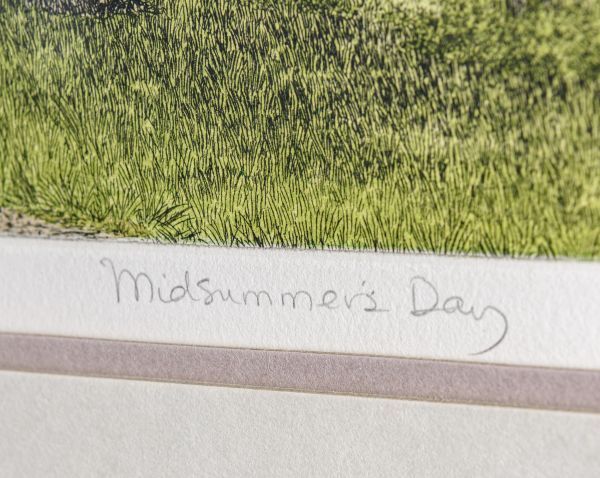 Midsummer's Day